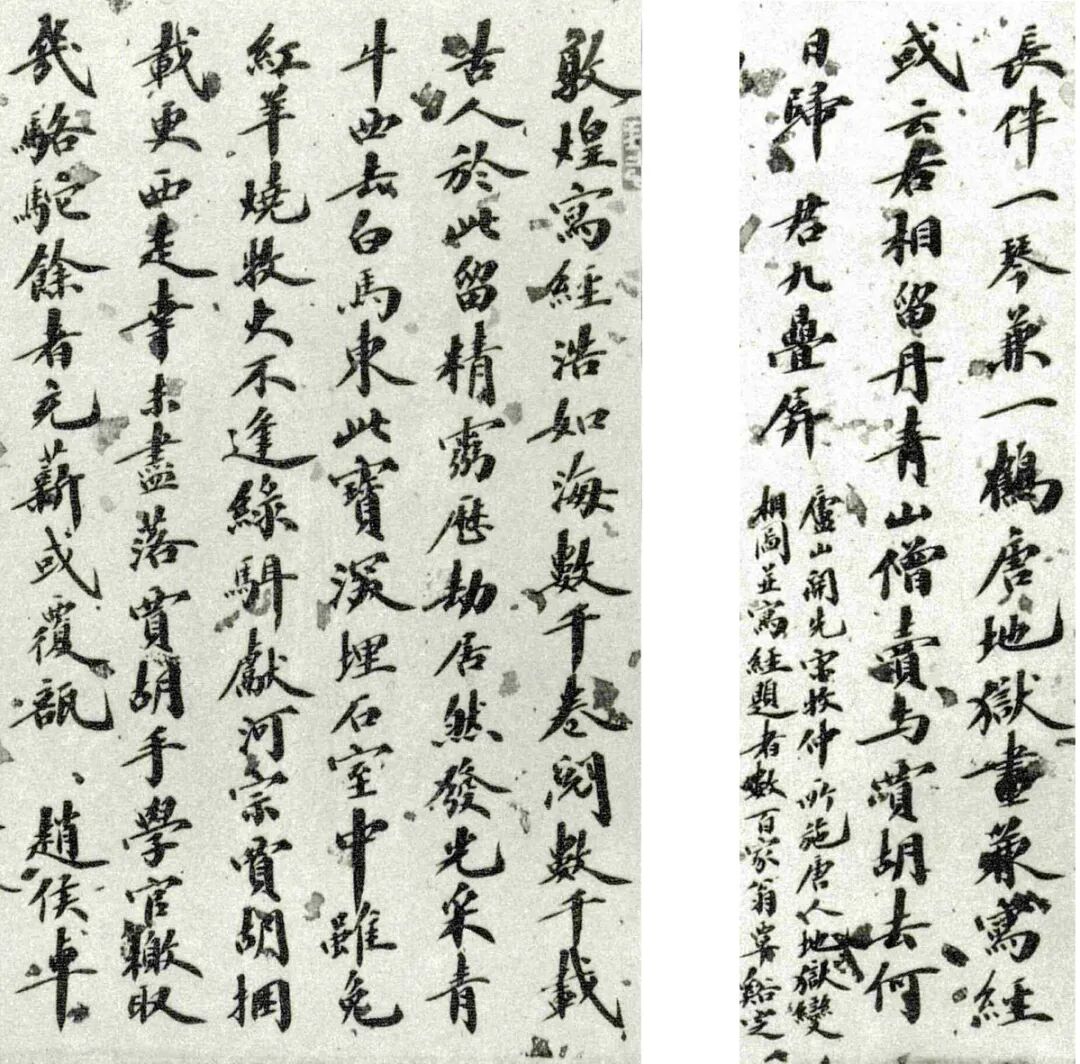 敦煌寫經浩如海數千卷閱數千載
昔人於此留精靈歷劫居然發光采青
牛西去白馬東此寶深埋石室中雖免
紅羊燒牧火不逢綠駬獻河宗賈胡捆
載更西走幸未盡落賈胡手學官檄取
幾駱駝餘者充薪或覆瓿、趙侯卓
長伴一琴兼一鶴唐地獄畫兼寫經
或云右相留丹青山僧賣与賈胡去何
日歸君九疊屏
廬山開先宋牧仲所施唐人地獄變
相圖並寫經題者數百家翁覃谿定